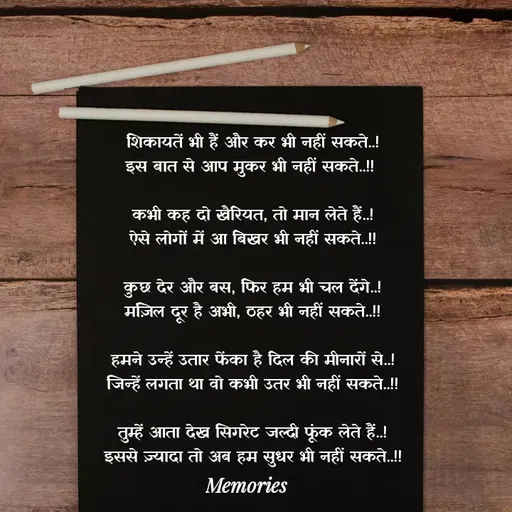 शिकायतें भी हैं और कर भी नहीं सकते..!
इस बात से आप मुकर भी नहीं सकते..!!
कभी कह दो खैरियत, तो मान लेते हैं..!
ऐसे लोगों में आ बिखर भी नहीं सकते..!!
कुछ देर और बस, फिर हम भी चल देंगे..!
मज़िल दूर है अभी, ठहर भी नहीं सकते..!!
हमने उन्हें उतार फेंका है दिल की मीनारों से..!
जिन्हें लगता था वो कभी उतर भी नहीं सकते..!!
तुम्हें आता देख सिगरेट जल्दी फूंक लेते हैं..!
इससे ज़्यादा तो अब हम सुधर भी नहीं सकते..!!
Memories